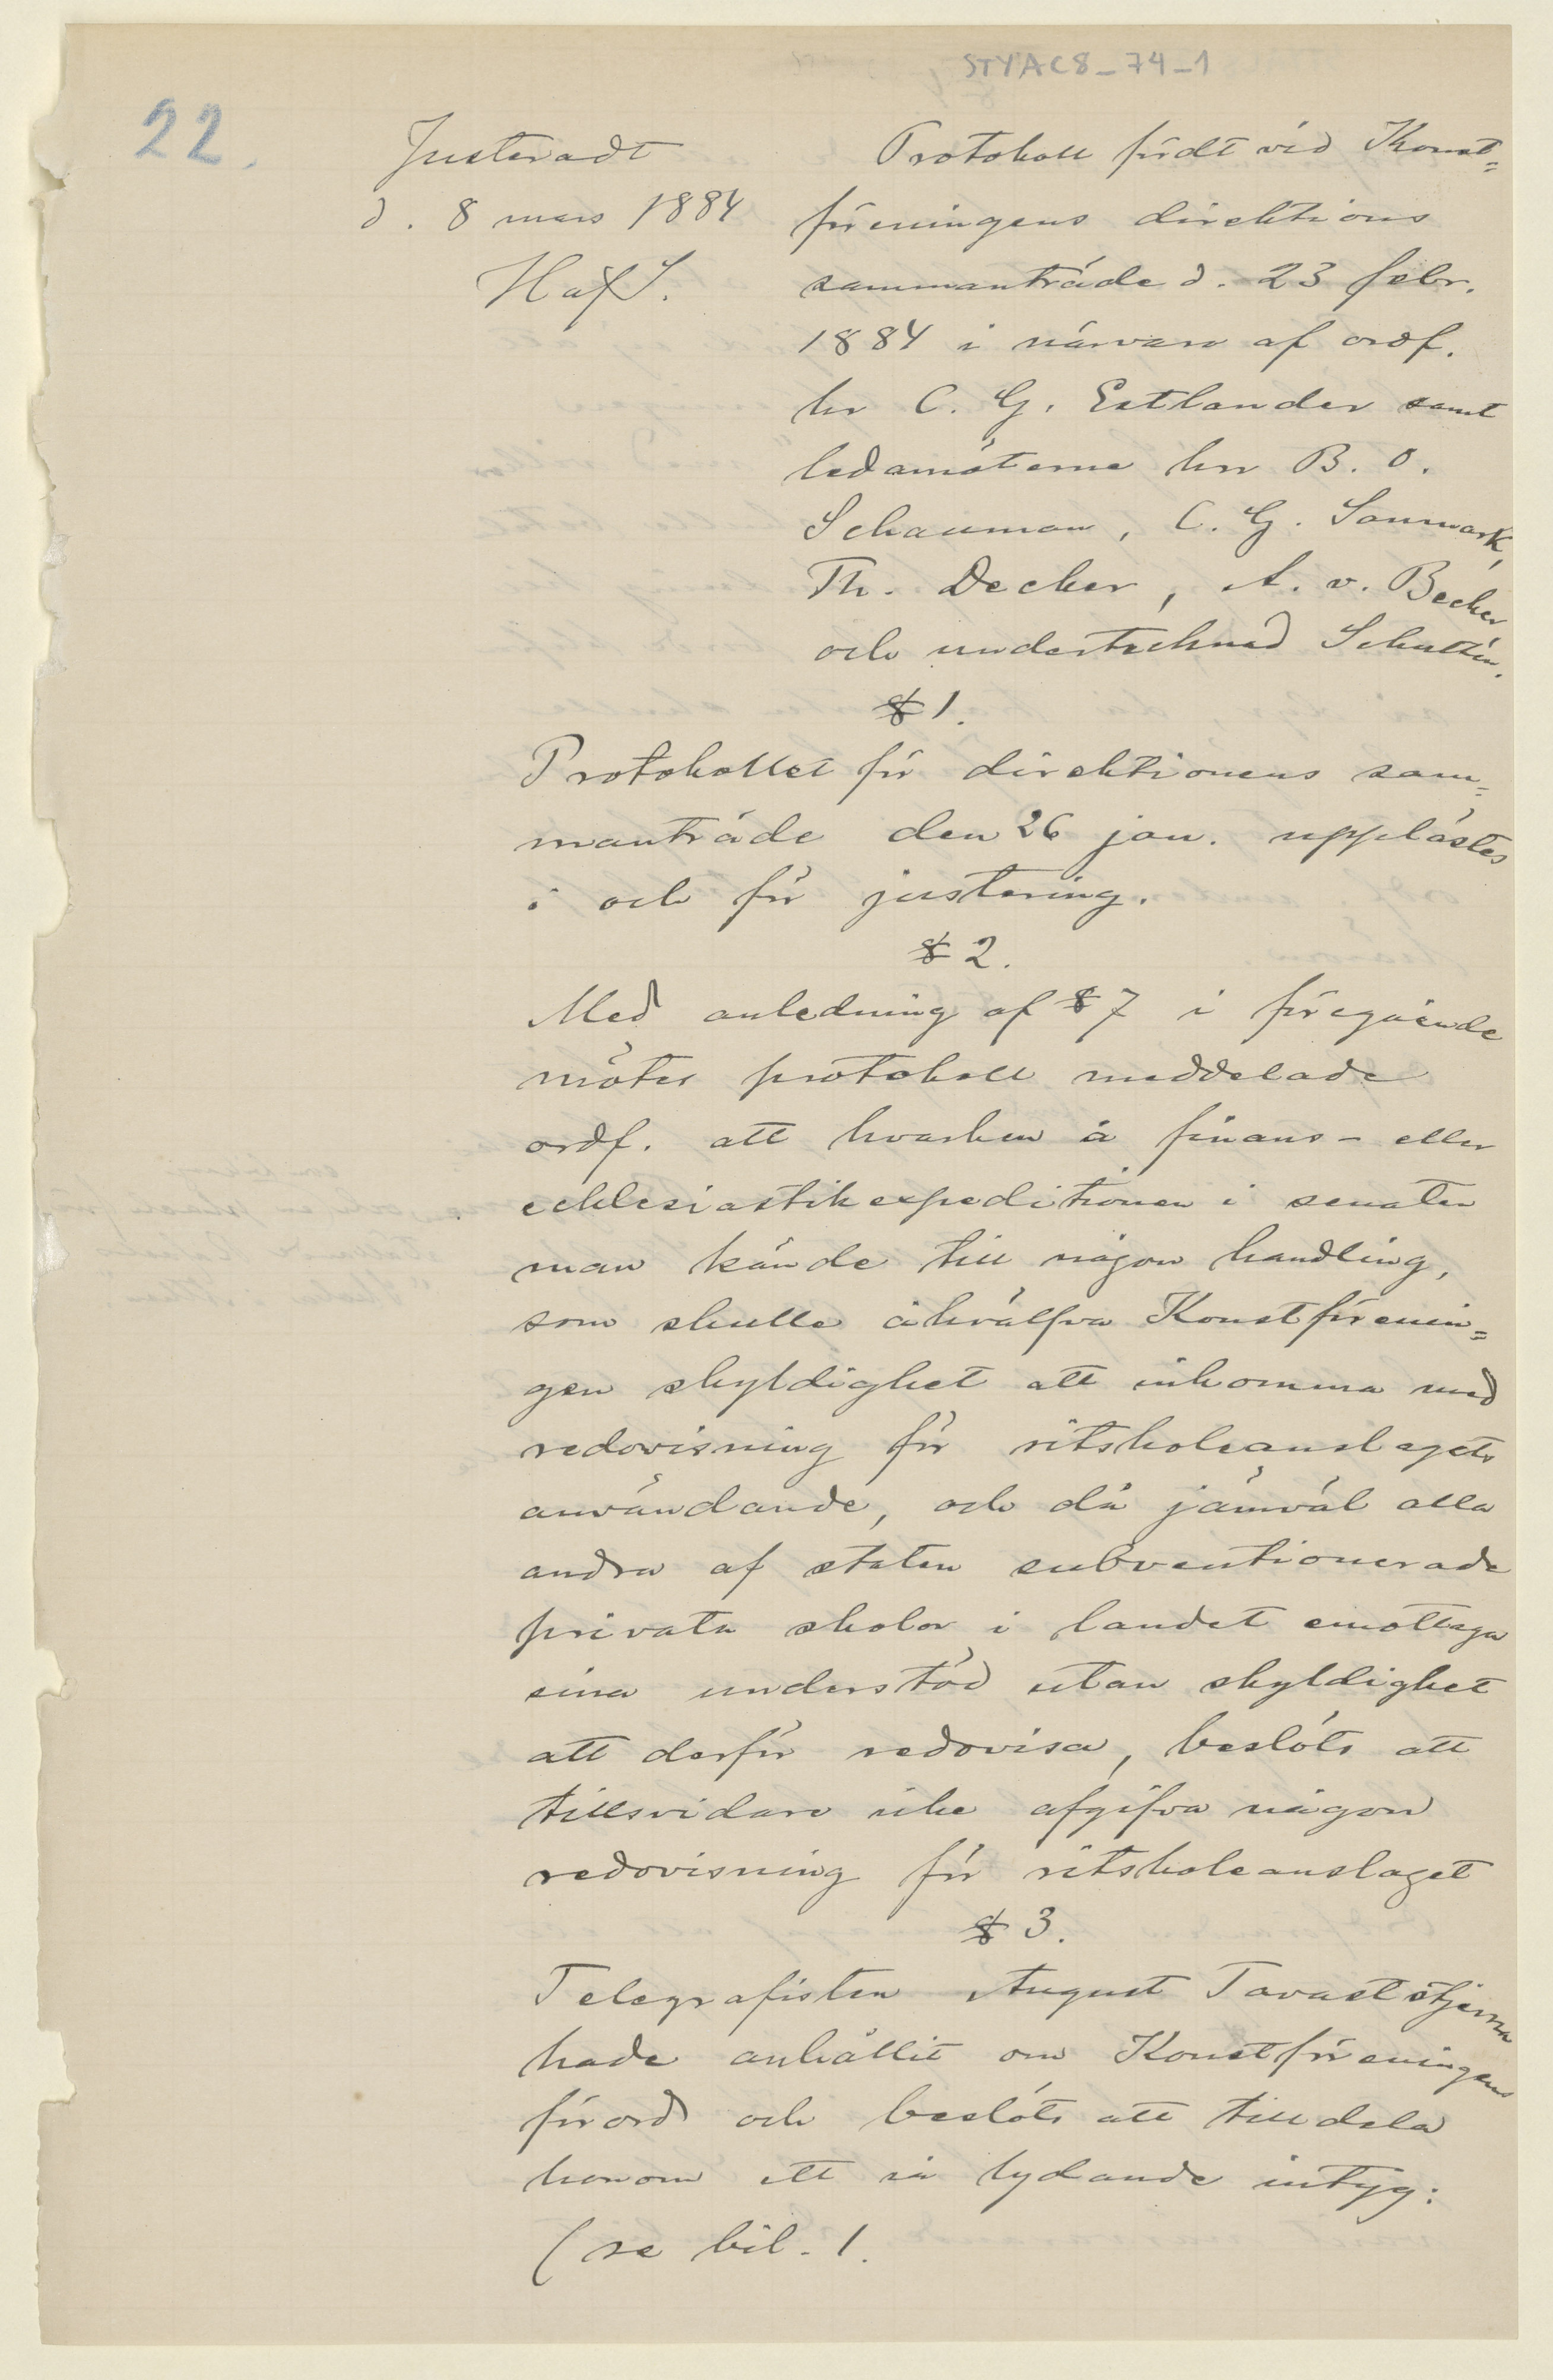 STYAC8_74_1
22.
Justeradt
d. 8 mars 1884
H af S.
Protokoll fördt vid Konst=
föreningens direktions
sammanträde d. 23 febr.
1884 i närvaro af ordf.
hr C. G. Estlander samt
ledamöterne hrr B. O.
Schauman, C. G. Sanmark,
Th. Decker, A. v. Becker
och undertecknad Schultén.
§ 1.
Protokollet för direktionens sam=
manträde den 26 jan. upplästes
i och för justering.
§ 2.
Med anledning af § 7 i föregående
mötes protokoll meddelade
ordf. att hvarken å finans- eller
ecklesiastikexpeditionen i senaten
man kände till någon handling,
som skulle åhvälfva Konstförenin=
gen skyldighet att inkomma med
redovisning för ritskoleanslagets
användande, och då jämväl alla
andra af staten subventionerade
privata skolor i landet emottaga
sina understöd utan skyldighet
att derför redovisa, beslöts att
tillsvidare icke afgifva någon
redovisning för ritskoleanslaget
§ 3.
Telegrafisten August Tavaststjerna
hade anhållit om Konstföreningens
förord och beslöts att tilldela
honom ett så lydande intyg:
(se bil. 1.